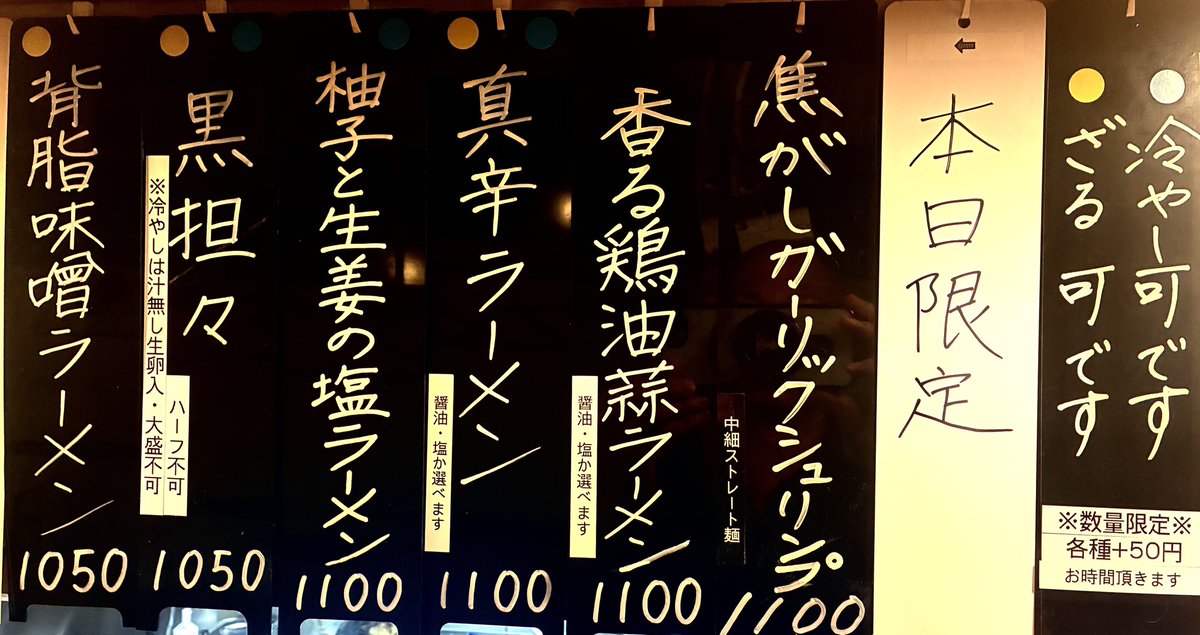 冷やし可です
ざる可です
※数量限定※
各種+50円
お時間頂きます
本日限定
焦がしガーリックシュリンプ
中細ストレート麺
1100
香る鶏油蒜ラーメン
醤油・塩か選べます
1100
真辛ラーメン
醤油・塩か選べます
1100
柚子と生姜の塩ラーメン
1100
黒担々
ハーフ不可
※冷やしは汁無し生卵入・大盛不可
1050
背脂味噌ラーメン
1050